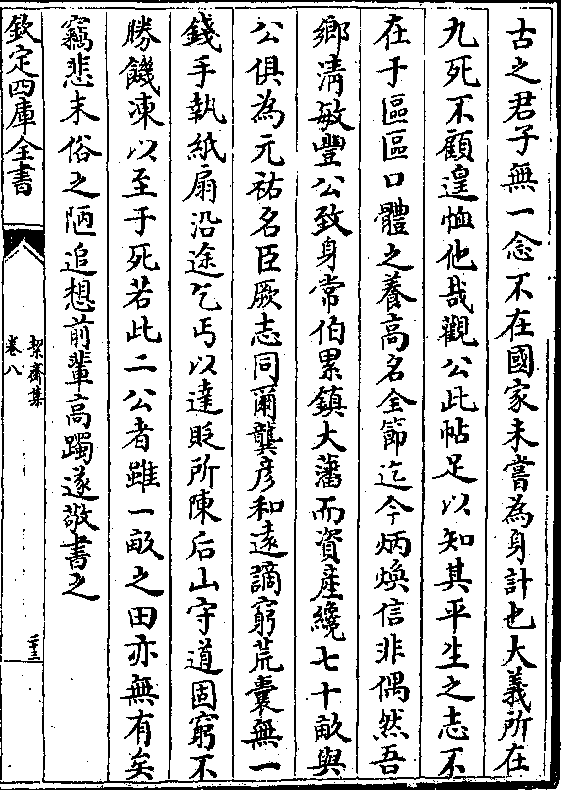 古之君子無一念不在國家未嘗為身計也大義所在
九死不顧遑恤他哉觀公此帖足以知其平生之志不
在于區區口體之養高名全節迄今炳煥信非偶然吾
鄉清敏豐公致身常伯累鎮大藩而資産纔七十畝與
公俱為元祐名臣厥志同爾龔彥和遠謫窮荒囊無一
錢手執紙扇沿途乞丐以達貶所陳后山守道固窮不
勝饑凍以至于死若此二公者雖一畝之田亦無有矣
竊悲末俗之陋追想前輩高躅遂敬書之
欽定四庫全書
絜齋集
卷八
二十三